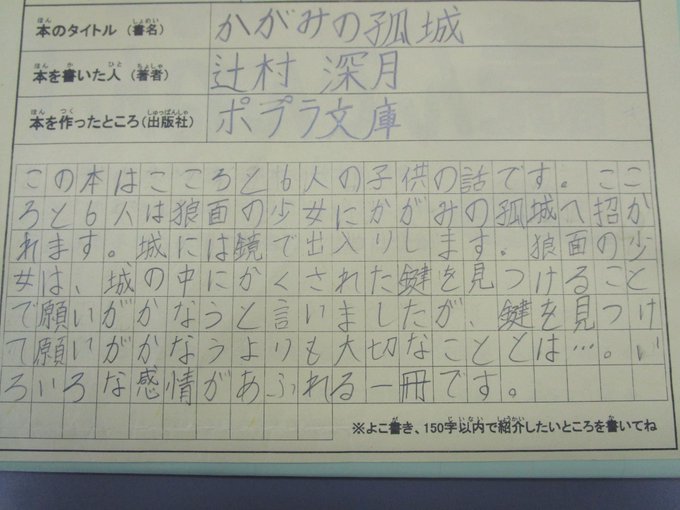 本のタイトル(書名) かがみの孤城
本を書いた人(著者) 辻村 深月
本を作ったところ(出版社) ポプラ文庫
この本はこころと6人の子供の話です。ここ
ろと6人は狼面の少女にかがみの孤城へ招か
れます。城には鏡で出入りします。狼面の少
女は、城の中にかくされた鍵を見つけること
で願いがかなうと言いましたが、鍵を見つけ
て願いがかなうよりも大切なこととは…。い
ろいろな感情があふれる一冊です。
※よこ書き、150字以内で紹介したいところを書いてね